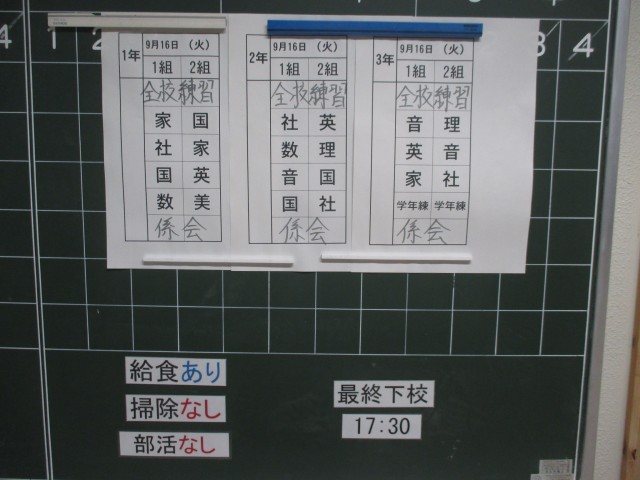 4 1 2 3 4
1年 9月16日 (火)
1組 2組
全校練習
家 国
社 家
国 英
数 美
係会
2年 9月16日 (火)
1組 2組
全校練習
社 英
数 理
音 国
国 社
係会
3年 9月16日 (火)
1組 2組
全校練習
音 理
英 音
家 社
学年練 学年練
係会
給食あり
掃除なし
部活なし
最終下校
17:30